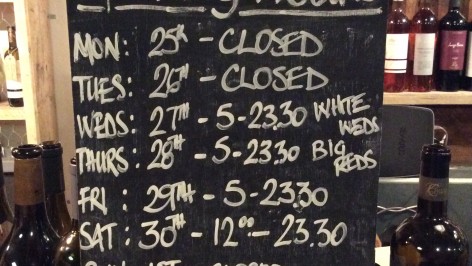 MON: 25th - CLOSED
TUES: 26th - CLOSED
WEDS: 27th - 5-23.30 WHITE WEDS
THURS: 28th - 5-23.30 BIG REDS
FRI: 29th - 5-23.30
SAT: 30TH - 12°° - 23.30